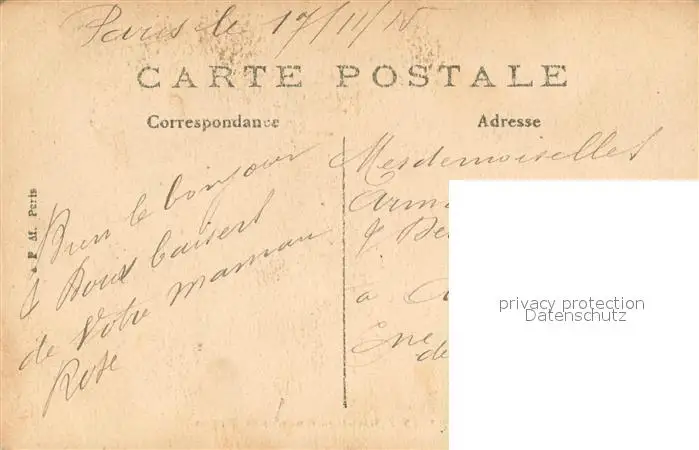 Paris le 17/11/15
CARTE POSTALE
Correspondance
Adresse
Bien le bonjour
& Doux baisers
de Votre maman
Rose
Mesdemoiselles
&
a
privacy protection
Datenschutz
M. Paris